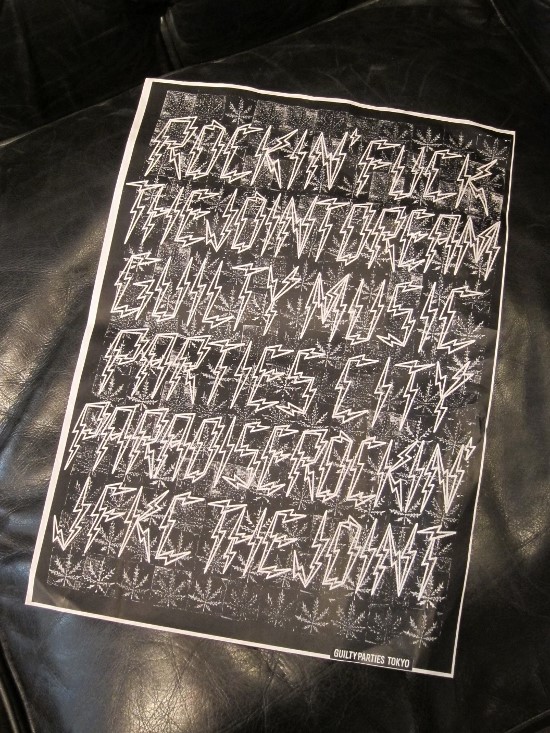 ROCKIN' FUCK
THE JOINT DREAM
GUILTY MUSIC
PARTIES CITY
PARADISE ROCKIN'
JFKE THE JOINT
GUILTY PARTIES TOKYO